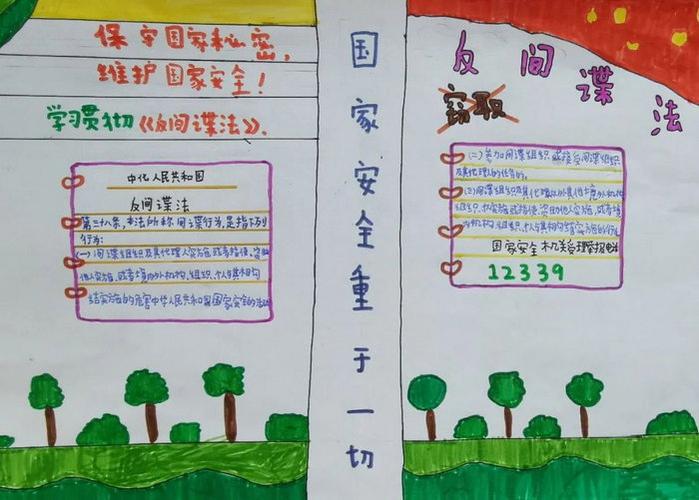 保守国家秘密,
维护国家安全!
学习贯彻《反间谍法》.
中华人民共和国
反间谍法
第三十八条,本法所称间谍行为,是指下列
行为:
(一)间谍组织及其代理人实施或者指使、资助
他人实施,或者境内外机构、组织、个人与其相勾
结实施的危害中华人民共和国国家安全的活动
国家安全重于一切
反间谍法
窃取
(二)参加间谍组织或接受间谍组织
及其代理人的任务的。
(三)间谍组织及其代理以外其他境外机构
组织、
国家安全机关受理举报电话
12339